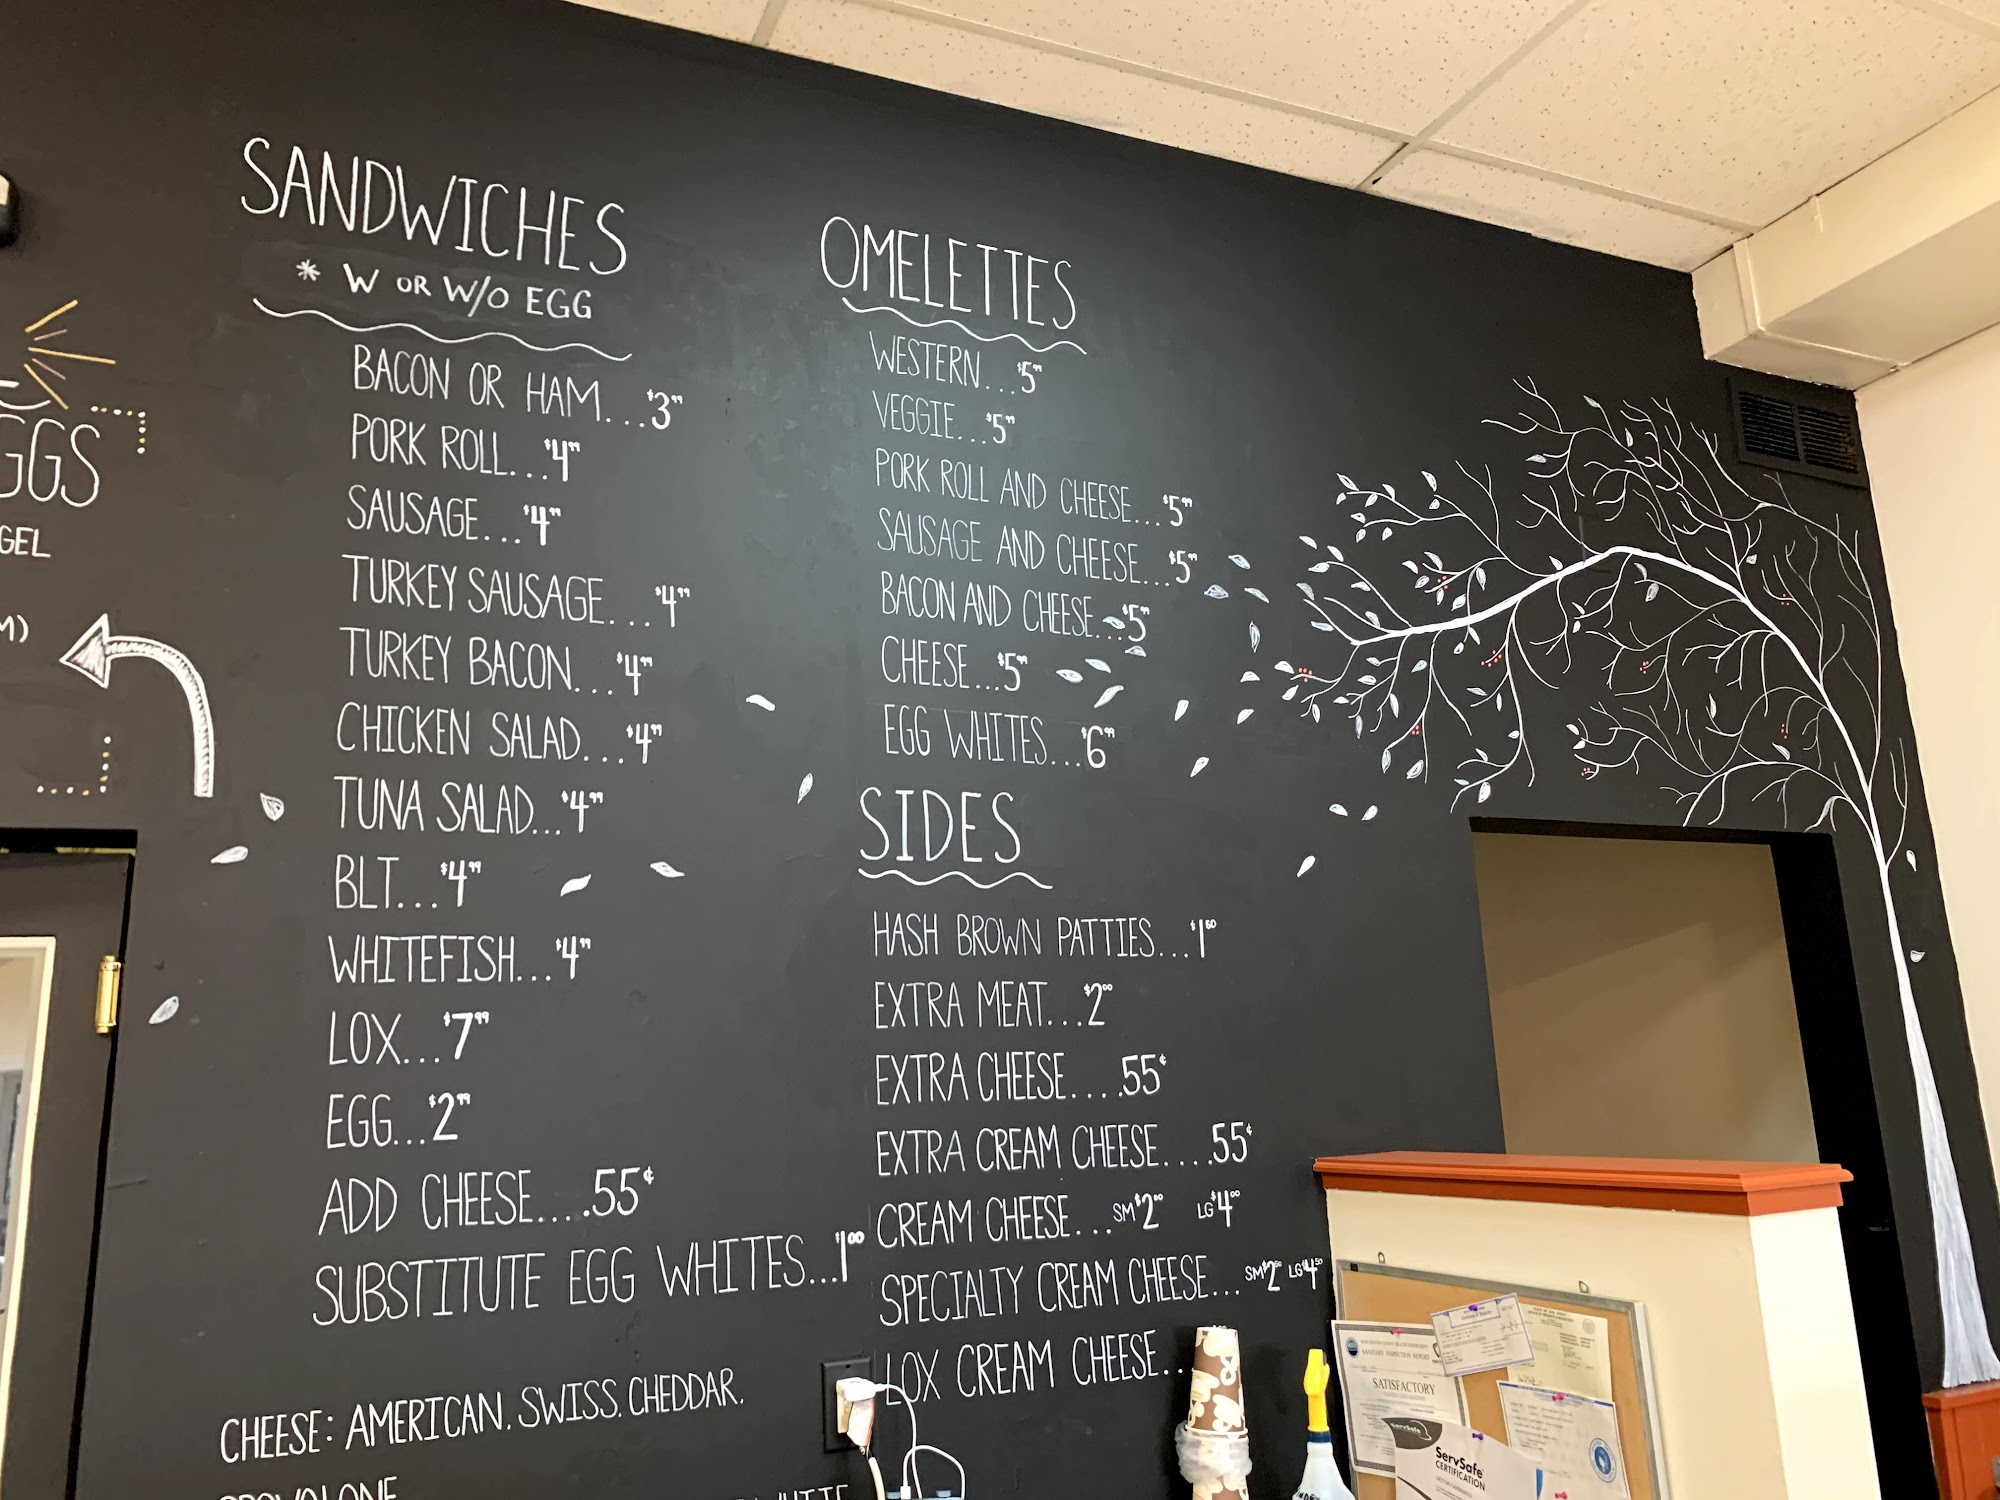 SANDWICHES
* W OR W/O EGG
BACON OR HAM...$3.99
PORK ROLL...$4.99
SAUSAGE...$4.99
TURKEY SAUSAGE...$4.99
TURKEY BACON...$4.99
CHICKEN SALAD...$4.99
TUNA SALAD...$4.99
BLT...$4.99
WHITEFISH...$4.99
LOX...$7.99
EGG...$2.99
ADD CHEESE....55¢
SUBSTITUTE EGG WHITES...$1.00
CHEESE: AMERICAN. SWISS. CHEDDAR.
PROVOLONE
GEL
OMELETTES
WESTERN...$5.99
VEGGIE...$5.99
PORK ROLL AND CHEESE...$5.99
SAUSAGE AND CHEESE...$5.99
BACON AND CHEESE...$5.99
CHEESE...$5.99
EGG WHITES...$6.99
SIDES
HASH BROWN PATTIES...$1.50
EXTRA MEAT...$2.00
EXTRA CHEESE....55¢
EXTRA CREAM CHEESE....55¢
CREAM CHEESE...SM $2.00 LG $4.00
SPECIALTY CREAM CHEESE...SM $2.50 LG $4.50
LOX CREAM CHEESE...
SANITARY INSPECTION REPORT
SATISFACTORY
ServSafe
ServSafe
CERTIFICATION